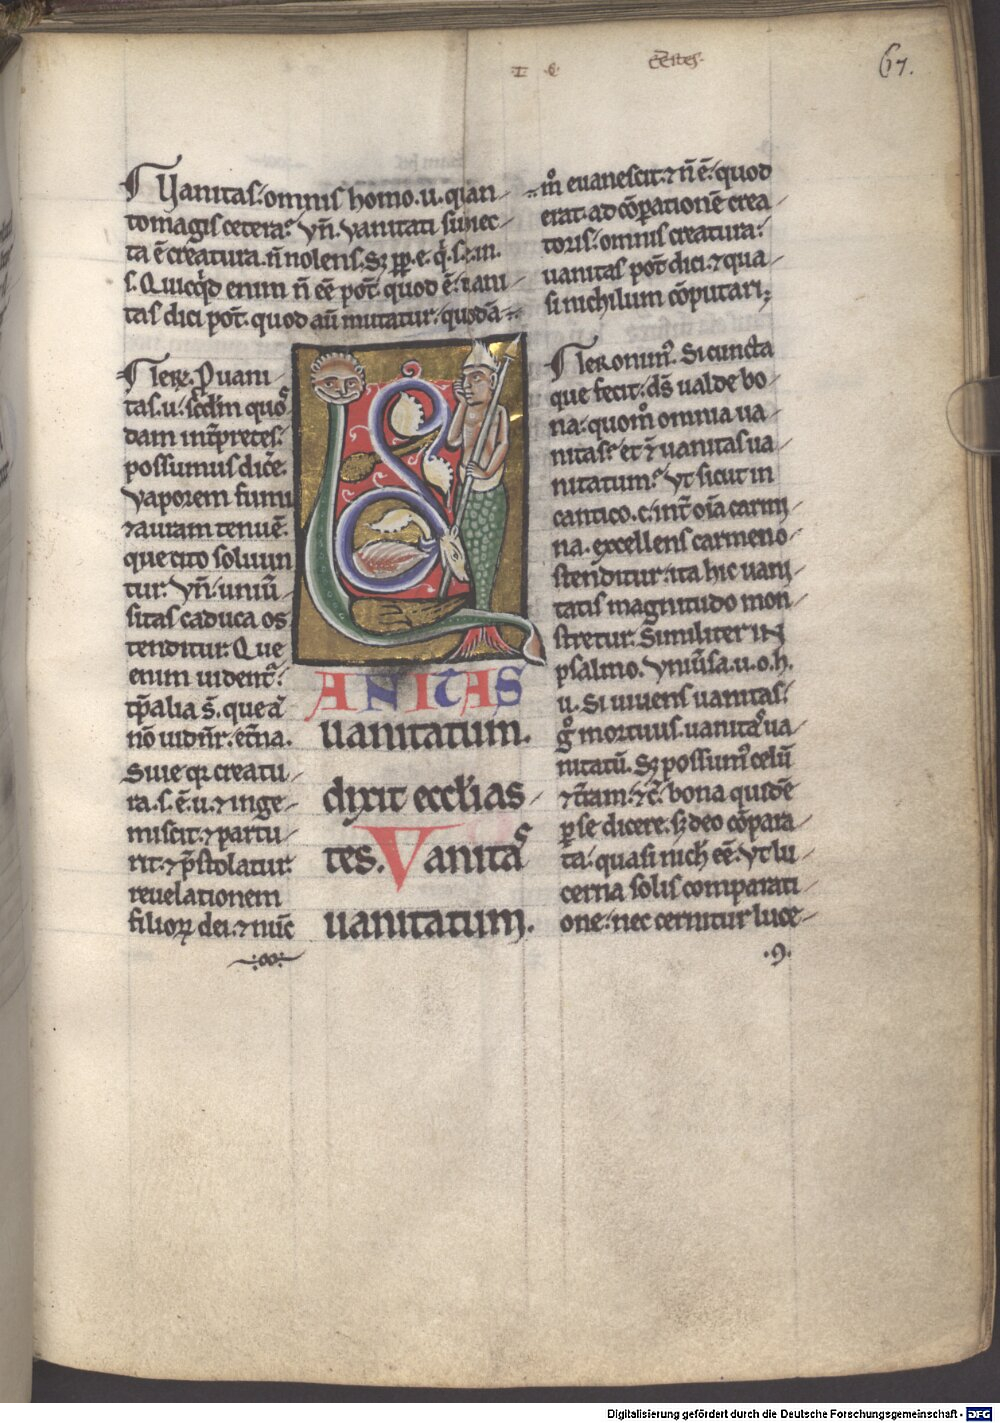 .I. .C. ecc̄stes.
67.
Vanitas. omnis homo. u. quan-
tomagis cetera? Vn̄. vanitati subiec-
ta ē creatura. n̄ nolens. Sꝫ ꝓp. e. qͥ. s. e. in.
s. Quicq͛d enim n̄ eē pot̄. quod ē. uani-
tas dici pot̄. quod aū mutatur. quodā
m̊ euanescit. ⁊ n̄ ē. quod
erat. ad cōparationē crea-
toris. omnis creatura.
uanitas pot̄ dici. ⁊ qua-
si nichilum cōputari;
Ier̄. P uani-
tas. u. scd̄m quos
dam int̄pretes.
possumus dic̄e.
Vaporem fumi
⁊ auram tenuē.
que cito soluun
tur. Vn̄. uniū
sitas caduca os
tenditur. Que
enim uident̄.
tp̄alia s̄. que aū
nō uidn̄r. et̄na.
Siue qr creatu-
ra. s. ē. u. ⁊ inge-
miscit. ⁊ partu-
rit. ⁊ p̄stolatur.
reuelationem
filioꝝ dei. ⁊ nūc
V
ANITAS
uanitatum.
dixit eccl̄ias-
tes. Vanitas
uanitatum.
Ieronim⁹. Si cuncta
que fecit. ds̄ ualde bo-
na. quom̊ omnia ua-
nitas? et n̄ uanitas ua-
nitatum? Vt sicut in
cantico. c. int̄ oīa carmi-
na. excellens carmen o-
stenditur. ita hic uani-
tatis magnitudo mon-
stretur. Similiter IN
psalmo. Vniūsa. u. o. h.
u. Si uiuens uanitas.
g̊ mortuus. uanitas ua-
nitatū. Sꝫ possum⁹ celū
⁊ t̄ram. ⁊ c̄. bona quidē
ꝑ se dicere. sꝫ deo cōpara-
ta. quasi nich̄ eē. Vt lu-
cerna solis comparati-
one. nec cernitur luce-
.9.
Digitalisierung gefördert durch die Deutsche Forschungsgemeinschaft - DFG